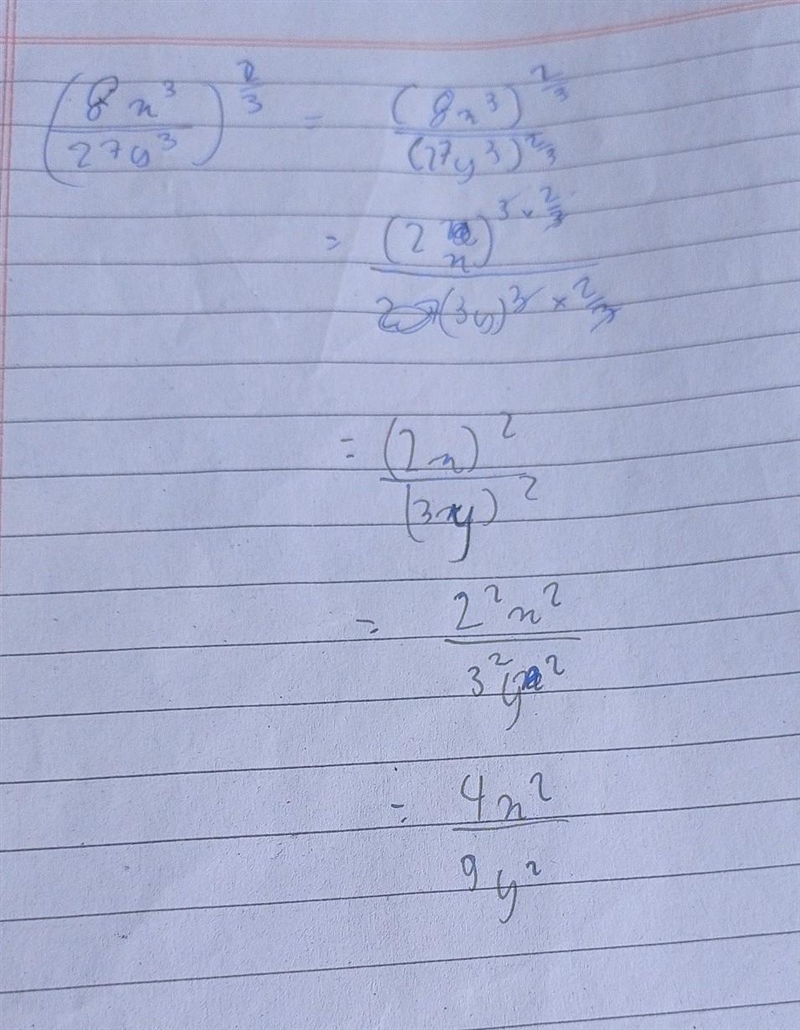 (8x³/27y³)^(2/3) = (8x³)^(2/3)/(27y³)^(2/3)
= (2x)^(3×2/3)/(3y)^(3×2/3)
= (2x)²/(3y)²
= 2²x²/3²y²
= 4x²/9y²